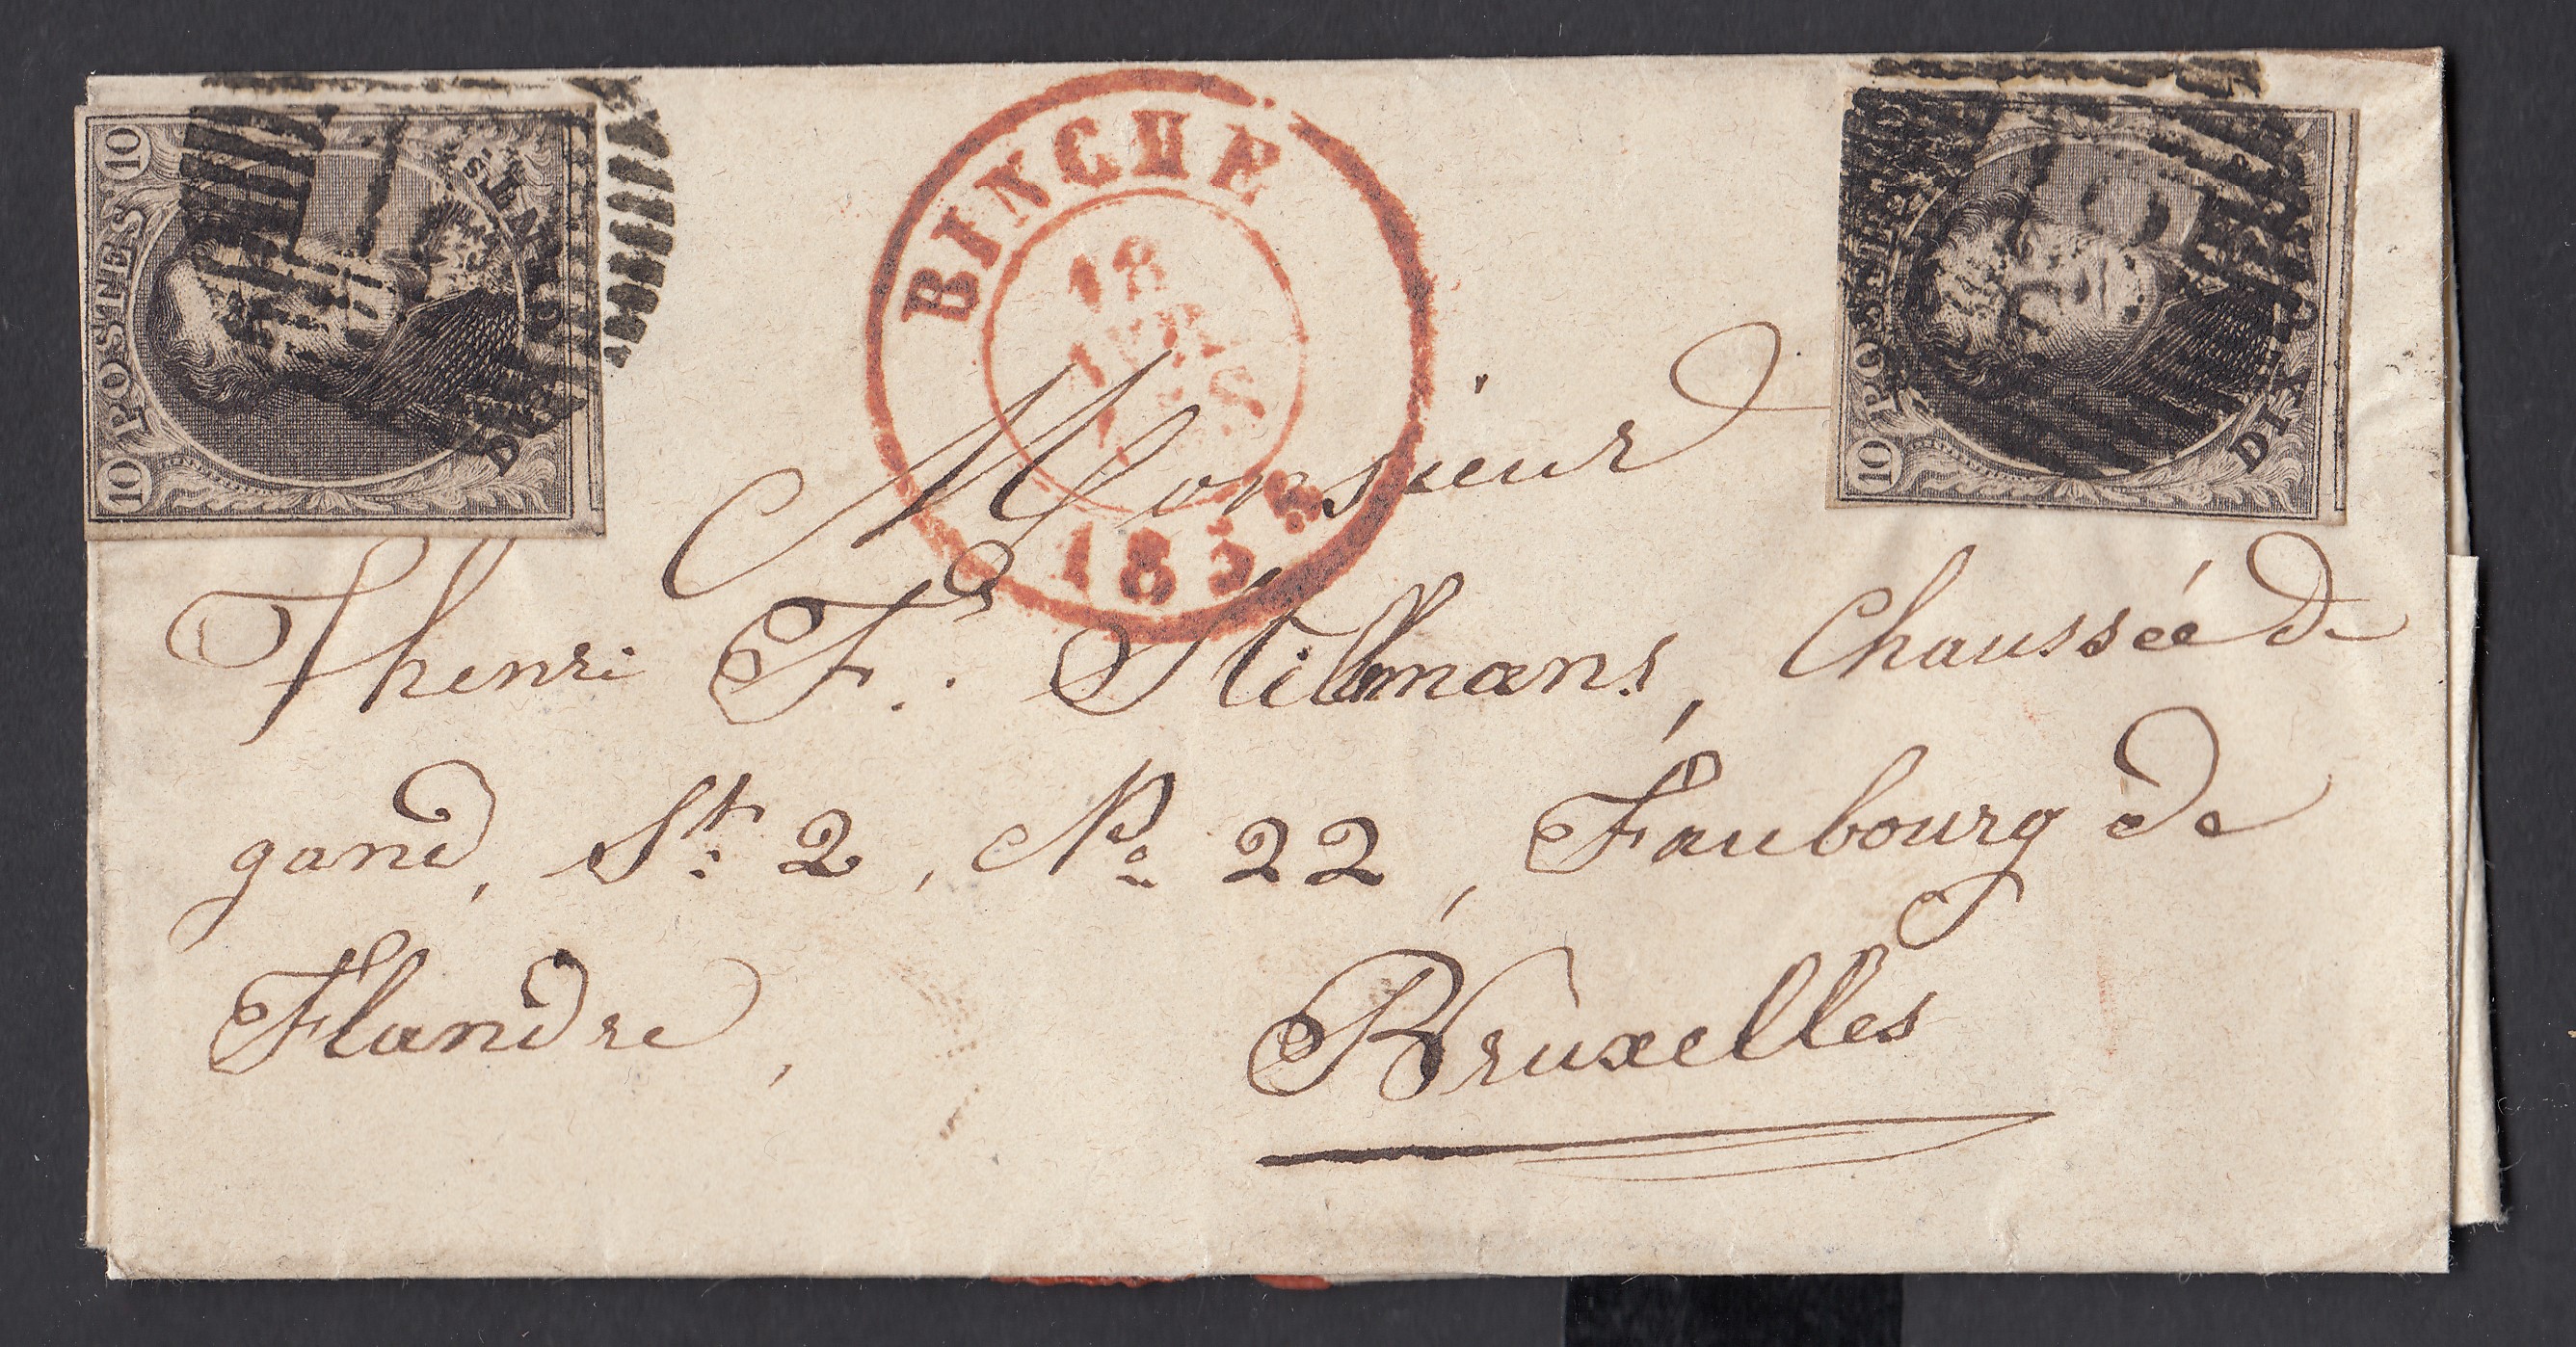 10 POSTES 10
BINCHE
18
1 S
185
POSTES 10
DIX
Monsieur
Thenri F. Stillmans, Chaussée de
gand, St: 2, No 22, Faubourg de
Flandre, Bruxelles